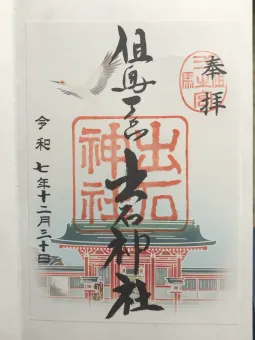 奉拝
但馬一宮 出石神社
出石
神社
令和 七年十二月三十日